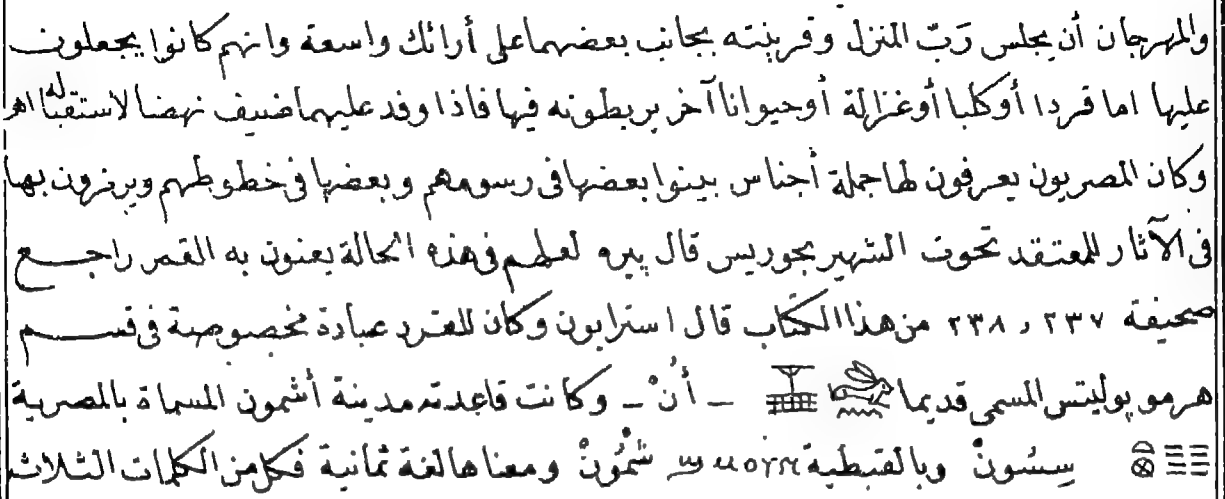 والمهرجان أن يجلس رَبّ المنزل وقرينته بجانب بعضهما على أرائك واسعة وانهم كانوا يجعلون
عليها اما قردا أو كلبا أو غزالة أو حيوانا آخر يربطونه فيها فاذا وفد عليهما ضيف نهضا لاستقباله اهـ
وكان المصريون يعرفون لها جملة أجناس بينوا بعضها فى رسومهم وبعضها فى خطوطهم ويرمزون بها
فى الآثار للمعتقد تحوت الشهير بجوريس قال پيره لعلهم فى هذه الحالة يعنون به القمر راجع
صحيفة ٢٣٧ و ٢٣٨ من هذا الكتاب قال استرابون وكان للقرد عبادة مخصوصة فى قسم
هرموپوليتس المسمى قديما ـ أُنْ ـ وكانت قاعدته مدينة أشمون المسماة بالمصرية
سِسُونْ وبالقبطية شْمُونْ ومعناها لغة ثمانية فكل من الكلمات الثلاث